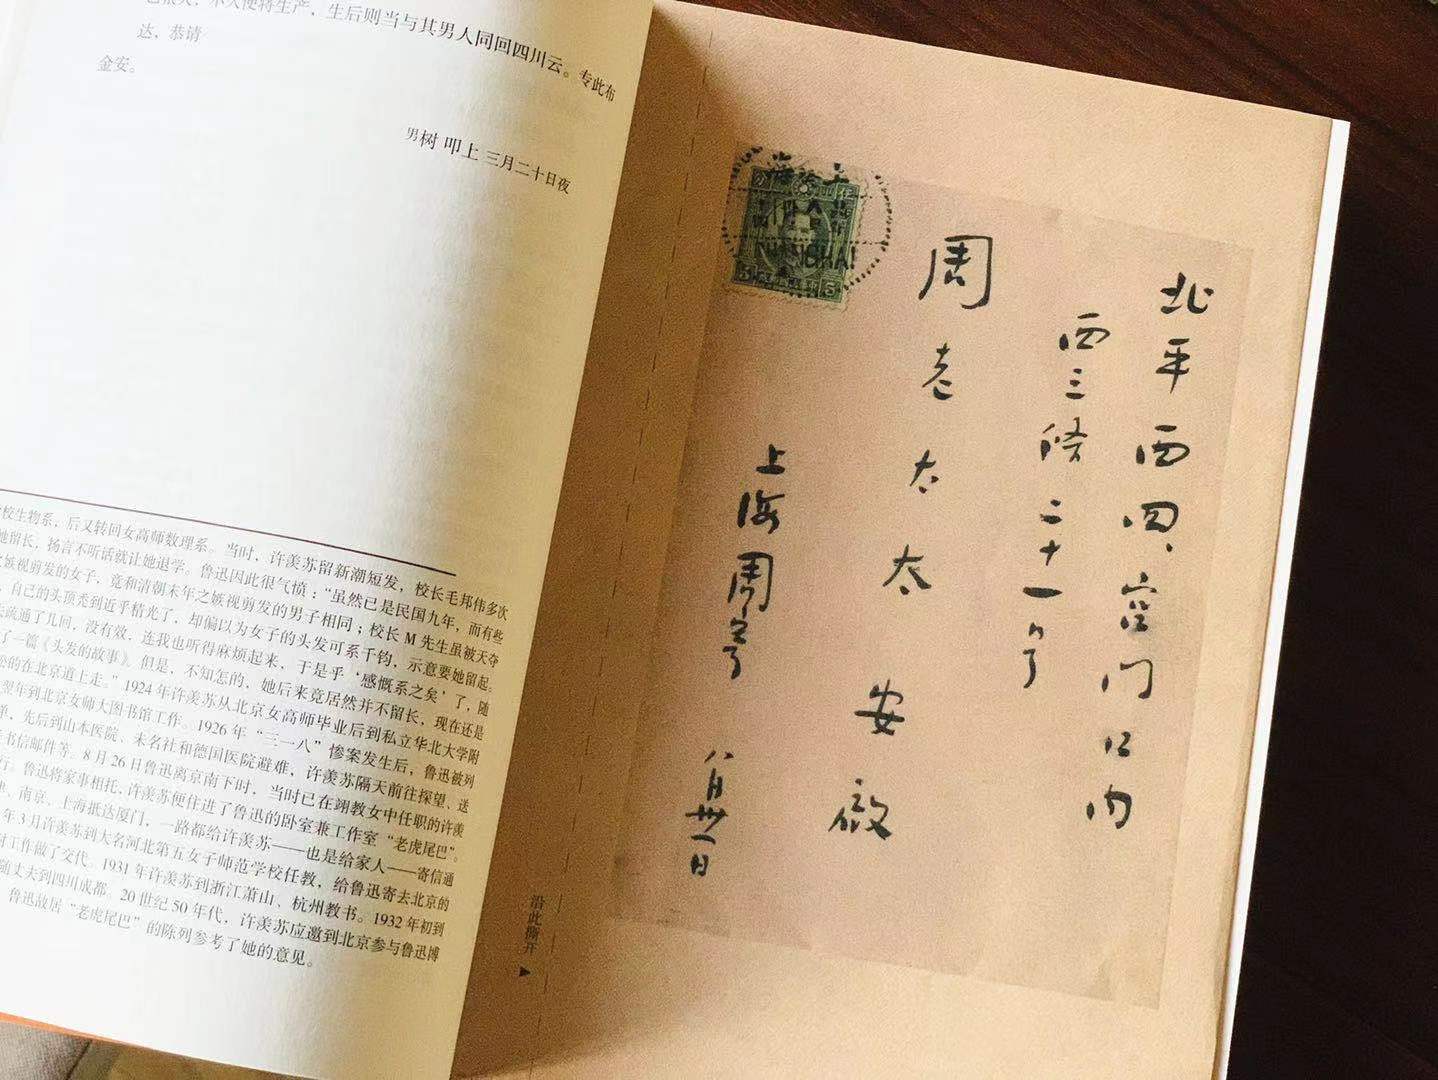 生后则当与其男人同回四川云。专此布
达，恭请
金安。
男树 叩上 三月二十日夜
校生物系，后又转回女高师数理系。当时，许羡苏留新潮短发，校长毛邦伟多次
她留长，扬言不听话就让她退学。鲁迅因此很气愤：“虽然已是民国九年，而有些
嫉视剪发的女子，竟和清朝末年之嫉视剪发的男子相同；校长M先生虽被天夺
自己的头顶秃到近乎精光了，却偏以为女子的头发可系千钧，示意要她留起。
疏通了几回，没有效，连我也听得麻烦起来，于是乎‘感慨系之矣’了，随
了一篇《头发的故事》。但是，不知怎的，她后来竟居然并不留长，现在还是
的在北京道上走。”1924年许羡苏从北京女高师毕业后到私立华北大学附
翌年到北京女师大图书馆工作。1926年“三一八”惨案发生后，鲁迅被列
单，先后到山本医院、未名社和德国医院避难，许羡苏隔天前往探望、送
书信邮件等。8月26日鲁迅离京南下时，当时已在翊教女中任职的许羡
行。鲁迅将家事相托，许羡苏便住进了鲁迅的卧室兼工作室“老虎尾巴”。
南京、上海抵达厦门，一路都给许羡苏——也是给家人——寄信通
年3月许羡苏到大名河北第五女子师范学校任教，给鲁迅寄去北京的
工作做了交代。1931年许羡苏到浙江萧山、杭州教书。1932年初到
随丈夫到四川成都。20世纪50年代，许羡苏应邀到北京参与鲁迅博
鲁迅故居“老虎尾巴”的陈列参考了她的意见。
北平西四、宫门口内
西三條二十一号
周老太太 安啟
上海周寄 八月卅一日
SHANGHAI
5
沿此撕开